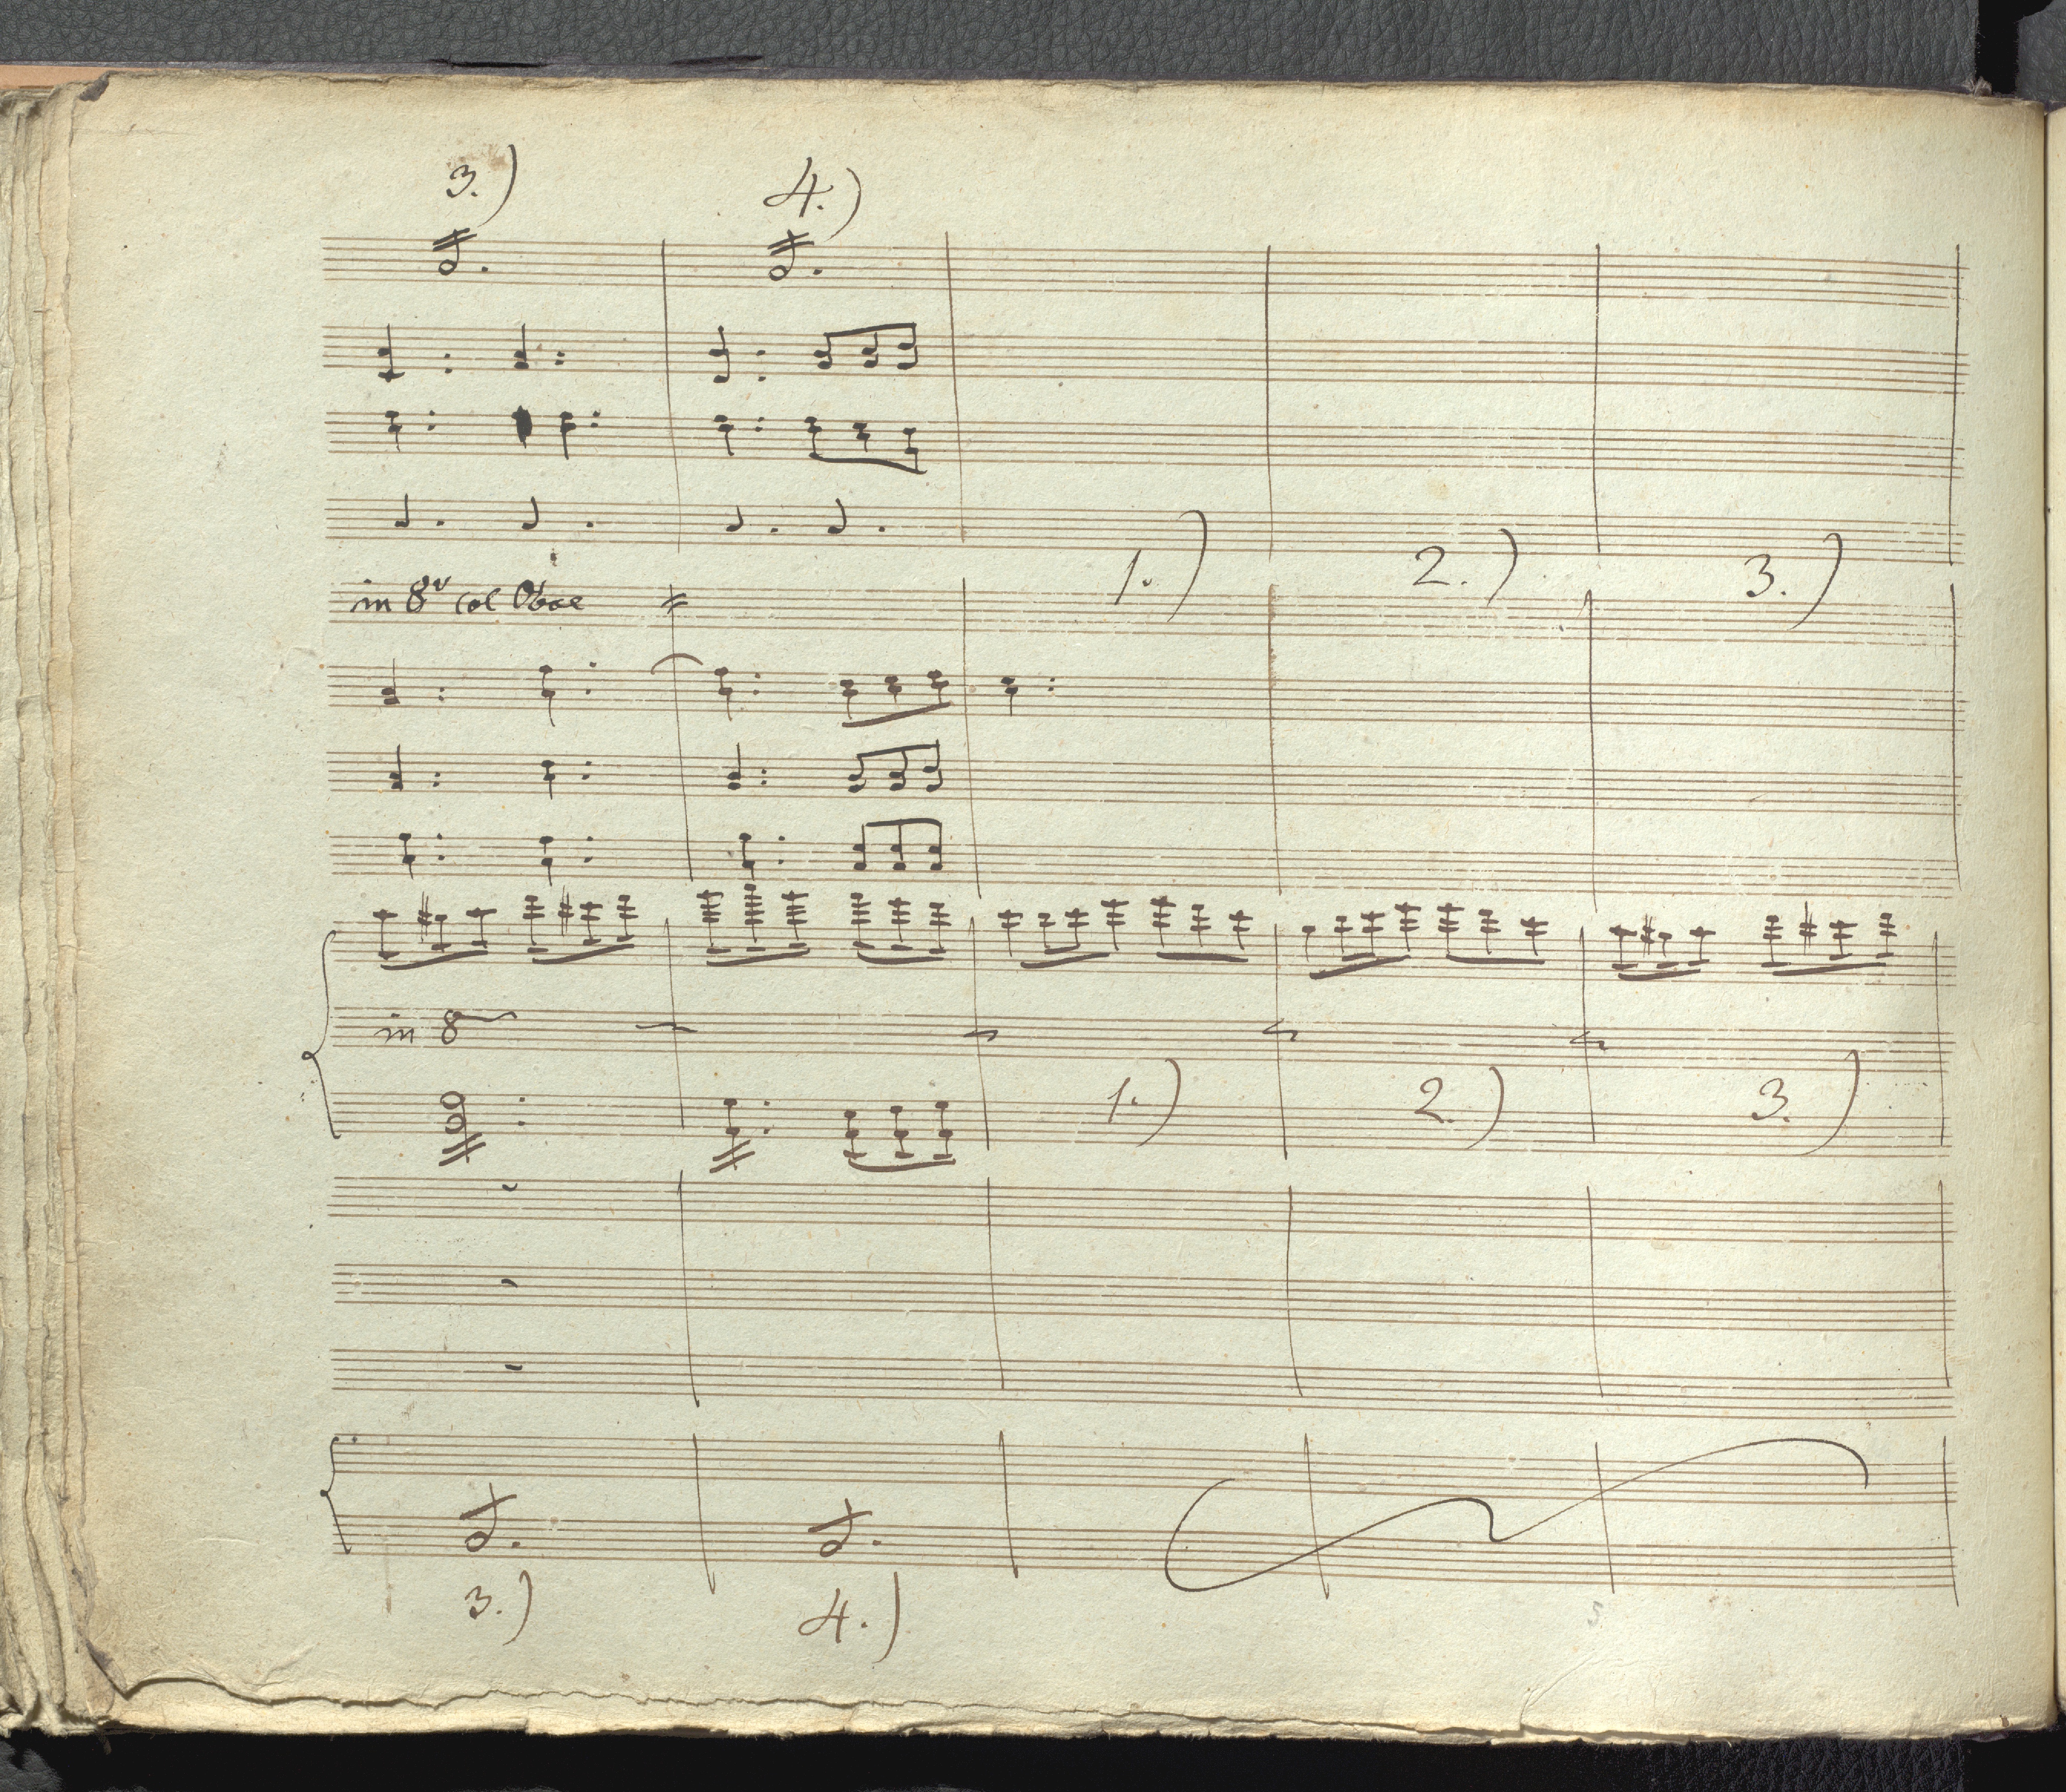 3.) 4.)
1.) 2.) 3.)
in 8v col Oboe
in 8
1.) 2.) 3.)
3.) 4.)
5